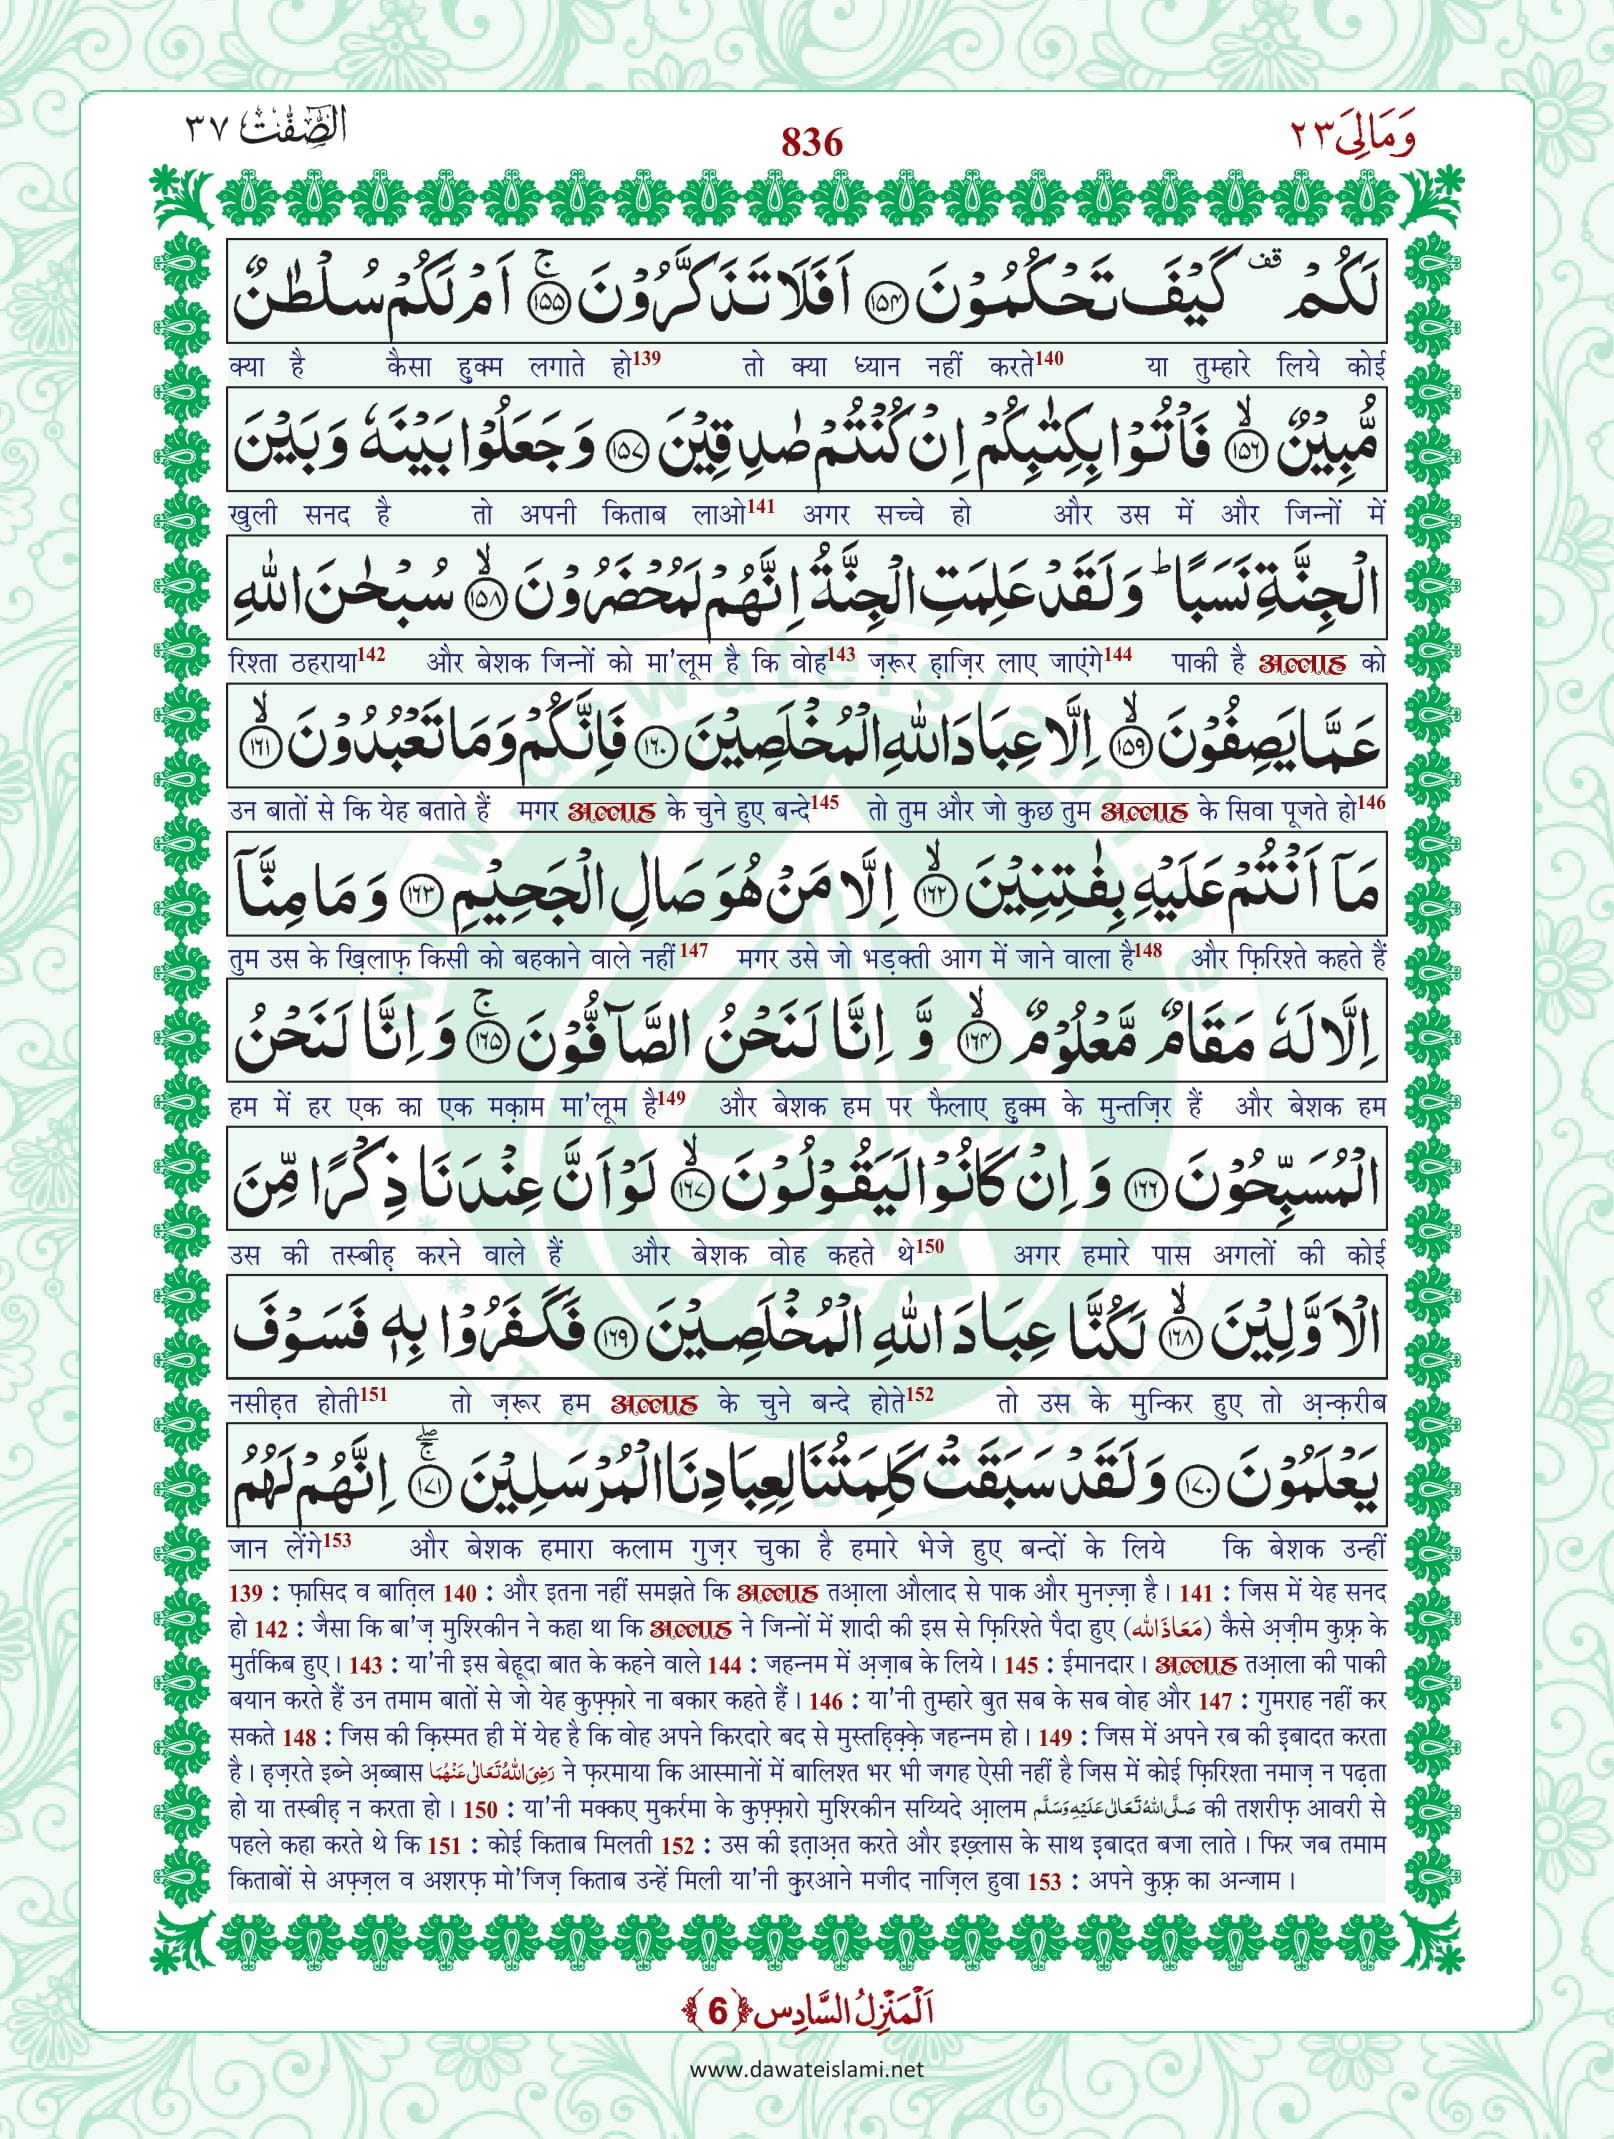 وَمَالِیَ ٢٣
836
الصّٰٓفّٰت ٣٧
لَكُمْ قف كَيْفَ تَحْكُمُوْنَ ﴿١٥٤﴾ اَفَلَا تَذَكَّرُوْنَ ﴿١٥٥﴾ۚ اَمْ لَكُمْ سُلْطٰنٌ
क्या है कैसा हुक्म लगाते हो139 तो क्या ध्यान नहीं करते140 या तुम्हारे लिये कोई
مُّبِيْنٌ ﴿١٥٦﴾ۙ فَاْتُوْا بِكِتٰبِكُمْ اِنْ كُنْتُمْ صٰدِقِيْنَ ﴿١٥٧﴾ وَجَعَلُوْا بَيْنَهٗ وَبَيْنَ
खुली सनद है तो अपनी किताब लाओ141 अगर सच्चे हो और उस में और जिन्नों में
الْجِنَّةِ نَسَبًا ؕ وَلَقَدْ عَلِمَتِ الْجِنَّةُ اِنَّهُمْ لَمُحْضَرُوْنَ ﴿١٥٨﴾ۙ سُبْحٰنَ اللّٰهِ
रिश्ता ठहराया142 और बेशक जिन्नों को मा'लूम है कि वोह143 ज़रूर ह़ाज़िर लाए जाएंगे144 पाकी है अल्लाह को
عَمَّا يَصِفُوْنَ ﴿١٥٩﴾ۙ اِلَّا عِبَادَ اللّٰهِ الْمُخْلَصِيْنَ ﴿١٦٠﴾ فَاِنَّكُمْ وَمَا تَعْبُدُوْنَ ﴿١٦١﴾ۙ
उन बातों से कि येह बताते हैं मगर अल्लाह के चुने हुए बन्दे145 तो तुम और जो कुछ तुम अल्लाह के सिवा पूजते हो146
مَاۤ اَنْتُمْ عَلَيْهِ بِفٰتِنِيْنَ ﴿١٦٢﴾ۙ اِلَّا مَنْ هُوَ صَالِ الْجَحِيْمِ ﴿١٦٣﴾ وَمَا مِنَّاۤ
तुम उस के ख़िलाफ़ किसी को बहकाने वाले नहीं147 मगर उसे जो भड़क्ती आग में जाने वाला है148 और फ़िरिश्ते कहते हैं
اِلَّا لَهٗ مَقَامٌ مَّعْلُوْمٌ ﴿١٦٤﴾ۙ وَّ اِنَّا لَنَحْنُ الصَّآفُّوْنَ ﴿١٦٥﴾ۚ وَاِنَّا لَنَحْنُ
हम में हर एक का एक मक़ाम मा'लूम है149 और बेशक हम पर फैलाए हुक्म के मुन्तज़िर हैं और बेशक हम
الْمُسَبِّحُوْنَ ﴿١٦٦﴾ وَاِنْ كَانُوْا لَيَقُوْلُوْنَ ﴿١٦٧﴾ۙ لَوْ اَنَّ عِنْدَنَا ذِكْرًا مِّنَ
उस की तस्बीह़ करने वाले हैं और बेशक वोह कहते थे150 अगर हमारे पास अगलों की कोई
الْاَوَّلِيْنَ ﴿١٦٨﴾ۙ لَكُنَّا عِبَادَ اللّٰهِ الْمُخْلَصِيْنَ ﴿١٦٩﴾ فَكَفَرُوْا بِهٖ فَسَوْفَ
नसीह़त होती151 तो ज़रूर हम अल्लाह के चुने बन्दे होते152 तो उस के मुन्किर हुए तो अ़न्क़रीब
يَعْلَمُوْنَ ﴿١٧٠﴾ وَلَقَدْ سَبَقَتْ كَلِمَتُنَا لِعِبَادِنَا الْمُرْسَلِيْنَ ﴿١٧١﴾ۚۖ اِنَّهُمْ لَهُمُ
जान लेंगे153 और बेशक हमारा कलाम गुज़र चुका है हमारे भेजे हुए बन्दों के लिये कि बेशक उन्हीं
139 : फ़ासिद व बाति़ल 140 : और इतना नहीं समझते कि अल्लाह तआ़ला औलाद से पाक और मुनज़्ज़ा है। 141 : जिस में येह सनद
हो 142 : जैसा कि बा'ज़ मुश्रिकीन ने कहा था कि अल्लाह ने जिन्नों में शादी की इस से फ़िरिश्ते पैदा हुए (مَعَاذَ اللّٰه) कैसे अ़ज़ीम कुफ़्र के
मुर्तकिब हुए। 143 : या'नी इस बेहूदा बात के कहने वाले 144 : जहन्नम में अ़ज़ाब के लिये। 145 : ईमानदार। अल्लाह तआ़ला की पाकी
बयान करते हैं उन तमाम बातों से जो येह कुफ़्फ़ारे ना बकार कहते हैं। 146 : या'नी तुम्हारे बुत सब के सब वोह और 147 : गुमराह नहीं कर
सकते 148 : जिस की क़िस्मत ही में येह है कि वोह अपने किरदारे बद से मुस्तह़िक़्क़े जहन्नम हो। 149 : जिस में अपने रब की इबादत करता
है। ह़ज़रते इब्ने अ़ब्बास رَضِىَ اللّٰهُ تَعَالٰى عَنْهُمَا ने फ़रमाया कि आस्मानों में बालिश्त भर भी जगह ऐसी नहीं है जिस में कोई फ़िरिश्ता नमाज़ न पढ़ता
हो या तस्बीह़ न करता हो। 150 : या'नी मक्कए मुकर्रमा के कुफ़्फ़ारो मुश्रिकीन सय्यिदे आ़लम صَلَّى اللّٰهُ تَعَالٰى عَلَيْهِ وَسَلَّم की तशरीफ़ आवरी से
पहले कहा करते थे कि 151 : कोई किताब मिलती 152 : उस की इत़ाअ़त करते और इख़्लास के साथ इबादत बजा लाते। फिर जब तमाम
किताबों से अफ़्ज़ल व अशरफ़ मो'जिज़ किताब उन्हें मिली या'नी क़ुरआने मजीद नाज़िल हुवा 153 : अपने कुफ़्र का अन्जाम।
اَلْمَنْزِلُ السَّادِس ﴿6﴾
www.dawateislami.net